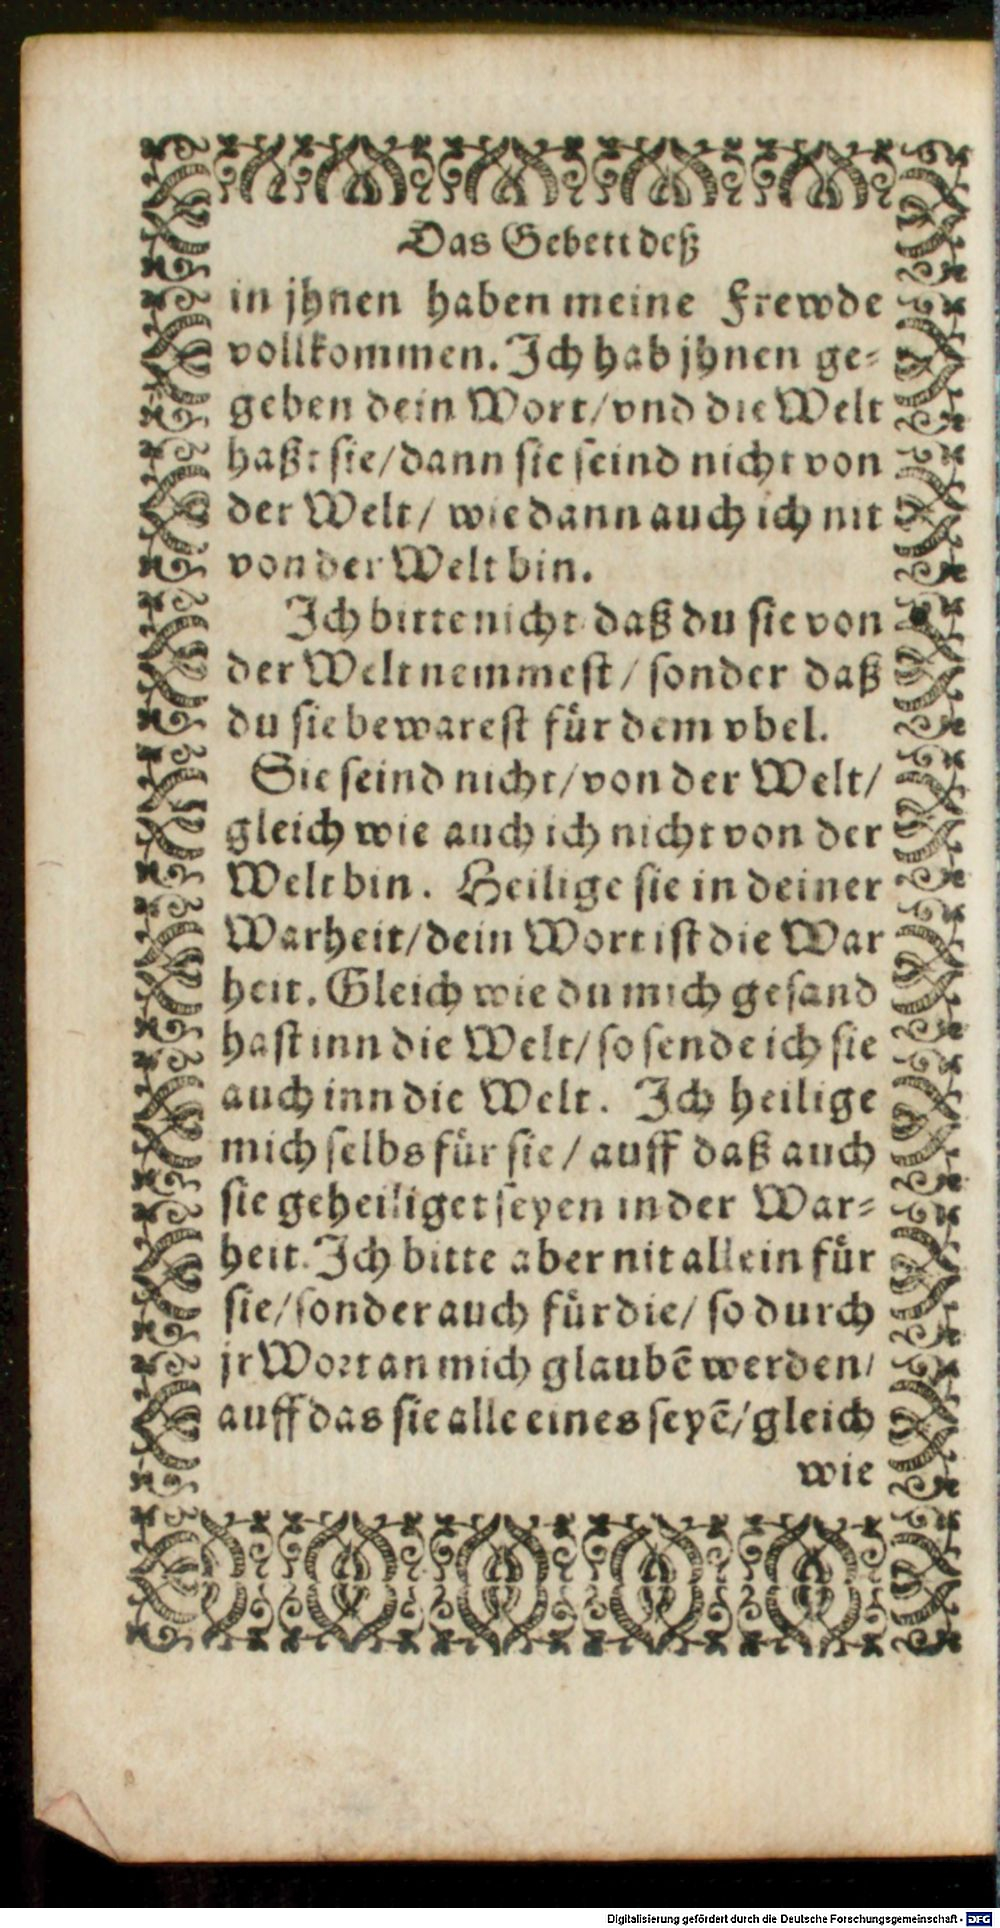 Das Gebett deß
in jhnen haben meine Frewde
vollkommen. Ich hab jhnen ge-
geben dein Wort/vnd die Welt
haßt sie/dann sie seind nicht von
der Welt/ wie dann auch ich nit
von der Welt bin.
Ich bitte nicht daß du sie von
der Welt nemmest/ sonder daß
du sie bewarest für dem vbel.
Sie seind nicht/von der Welt/
gleich wie auch ich nicht von der
Welt bin. Heilige sie in deiner
Warheit/dein Wort ist die War
heit. Gleich wie du mich gesand
hast inn die Welt/so sende ich sie
auch inn die Welt. Ich heilige
mich selbs für sie/auff daß auch
sie geheiliget seyen in der War-
heit. Ich bitte aber nit allein für
sie/sonder auch für die/ so durch
jr Wort an mich glaubē werden/
auff das sie alle eines seyē/gleich
wie
Digitalisierung gefördert durch die Deutsche Forschungsgemeinschaft - DFG